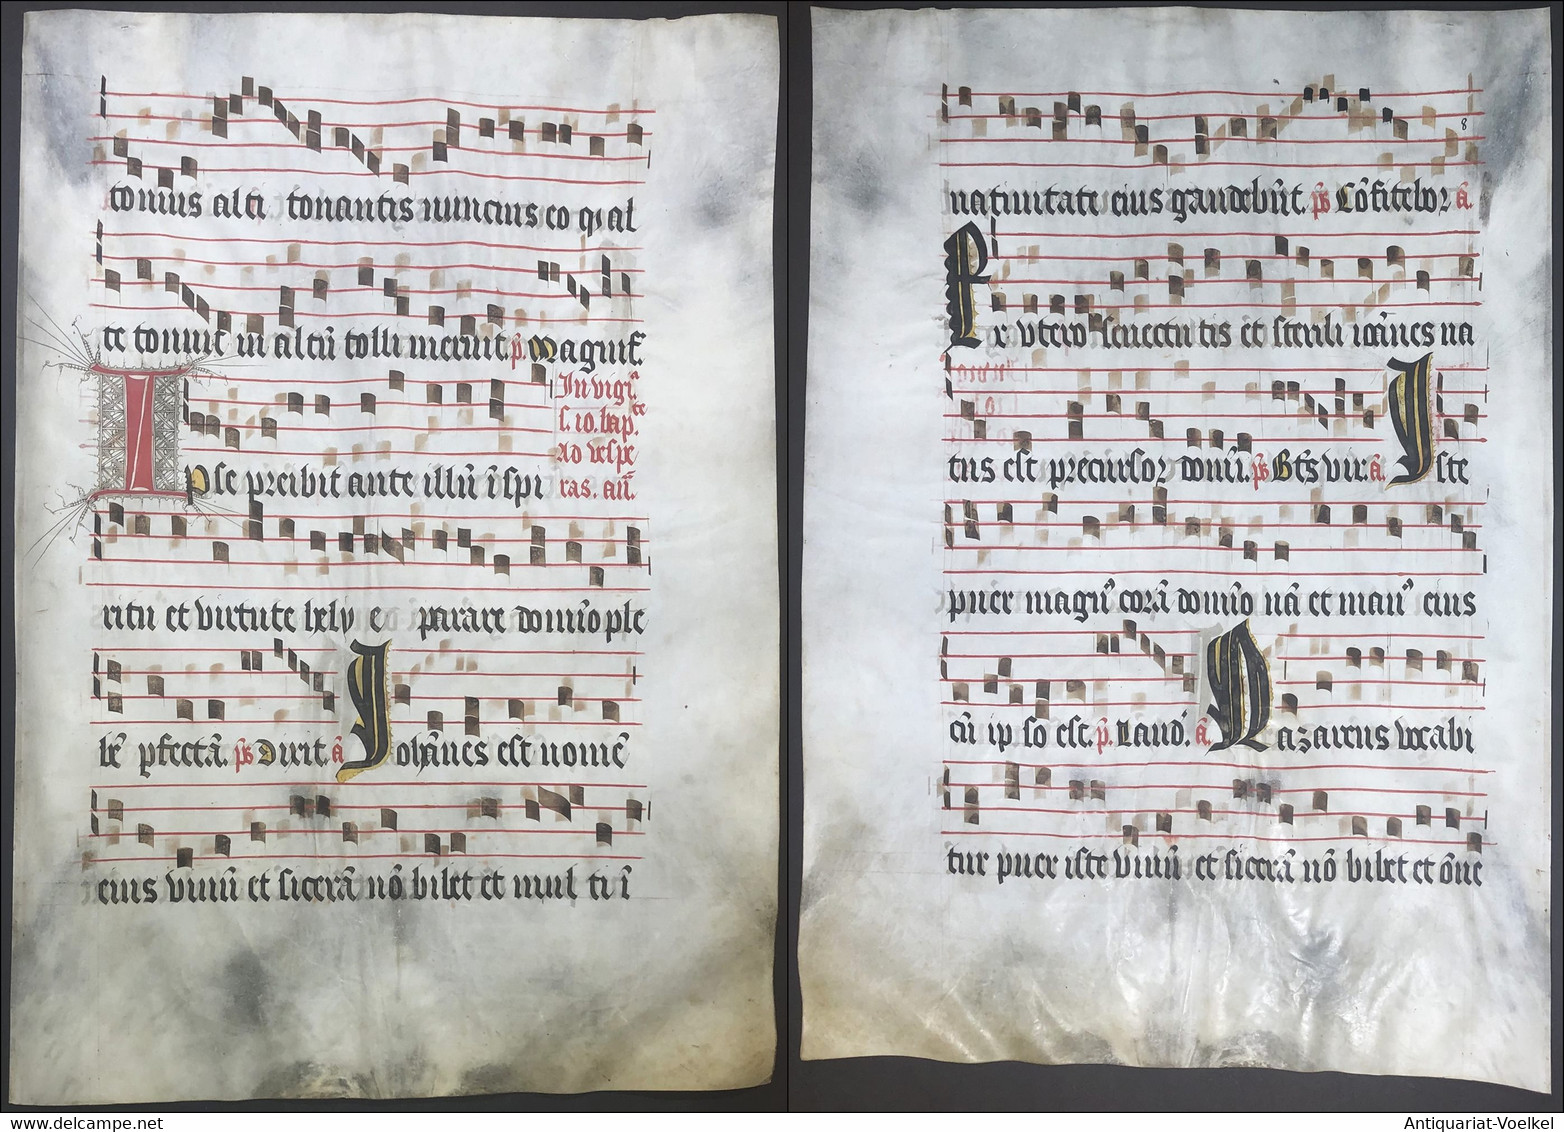 tonius alti tonantis nuncius eo qꝫ al
te tonuit in altū tolli meruit. p̄. Magnif̄.
In vigl̄
s. io. bap̄.
Ad vespe
ras. añ.
Ipse preibit ante illū ī spi
ritu et virtute hely e parare domīo ple
bē ꝑfectā. p̄s Dixit. ā Johānes est nomē
eius vinū et sicerā nō bibet et mul ti ī
8
nativitate eius gaudebūt. p̄s Cōfitebor ā.
Ex utero senectu tis et sterili ioānes na
tus est precursor domī. p̄s Btūs vir. ā. Iste
puer magn᷒ corā domīo nā et man᷒ eius
cū ip so est. p̄. Laud̄. ā. Nazareus vocabi
tur puer iste vinū et sicerā nō bibet et ōne
Antiquariat-Voelkel